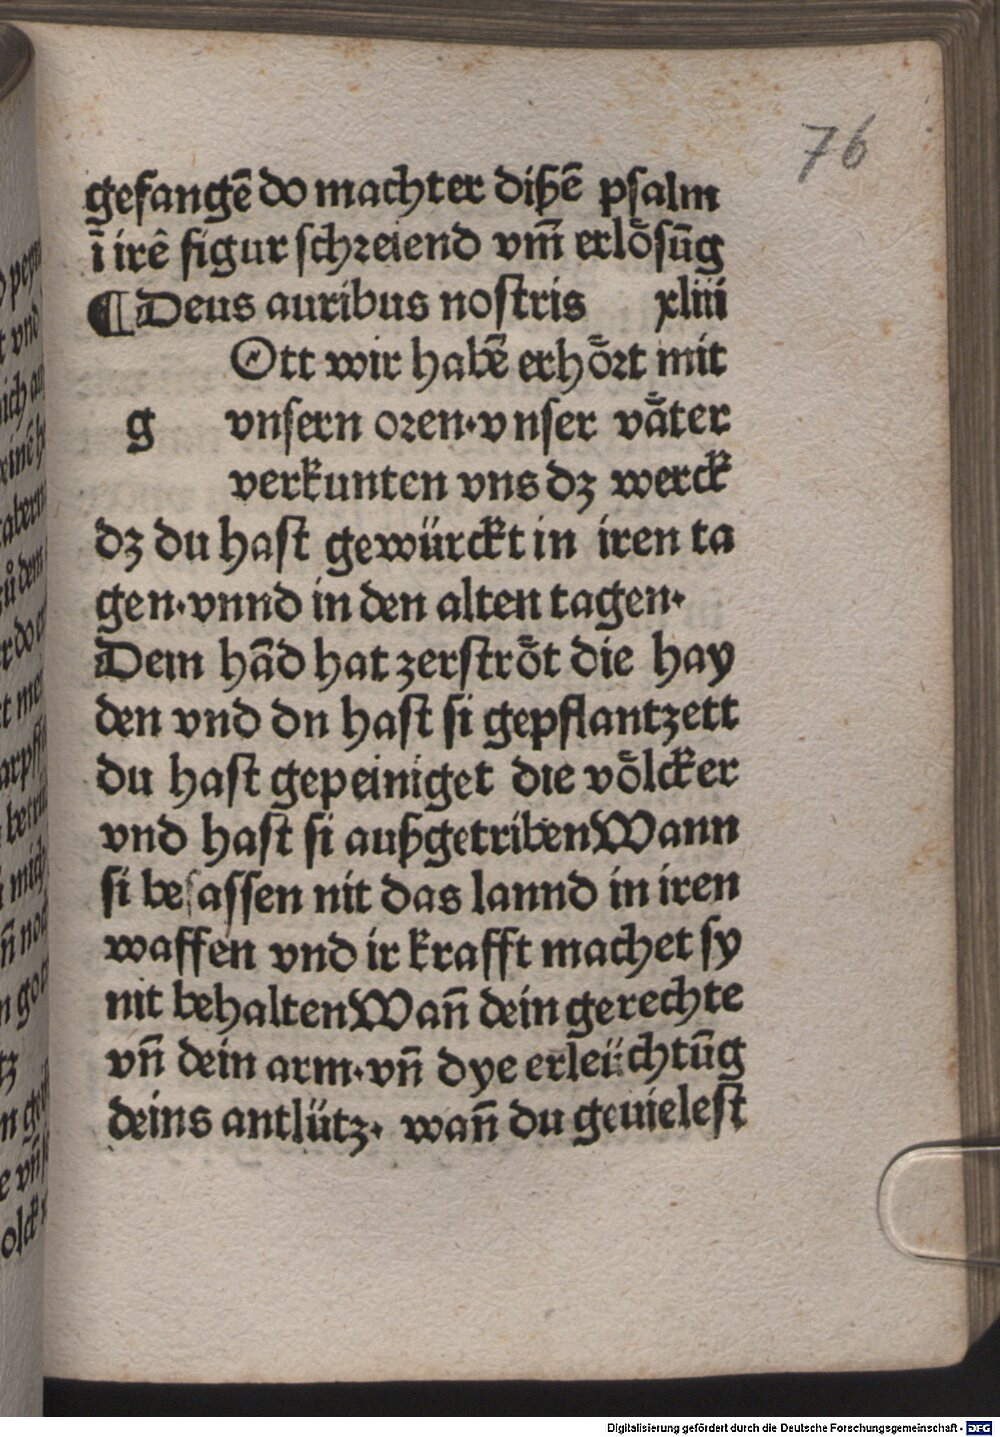 76
gefangē do machter dißē psalm
ī irē figur schreiend vm̄ erlöſūg
¶Deus auribus nostris xliii
Ott wir habē erhöꝛt mit
g vnſern oꝛen·vnſer väter
verkunten vns dz werck
dz du haſt gewürckt in iren ta
gen·vnnd in den alten tagen·
Dein hād hat zerſtröt die hay
den vnd dn haſt ſi gepflantzett
du haſt gepeiniget die völcker
vnd haſt ſi außgetriben Wann
ſi beſaſſen nit das lannd in iren
waffen vnd ir krafft machet ſy
nit behalten Wañ dein gerechte
vñ dein arm·vñ dye erleüchtūg
deins antlütz· wañ du geuieleſt
Digitalisierung gefördert durch die Deutsche Forschungsgemeinschaft - DFG